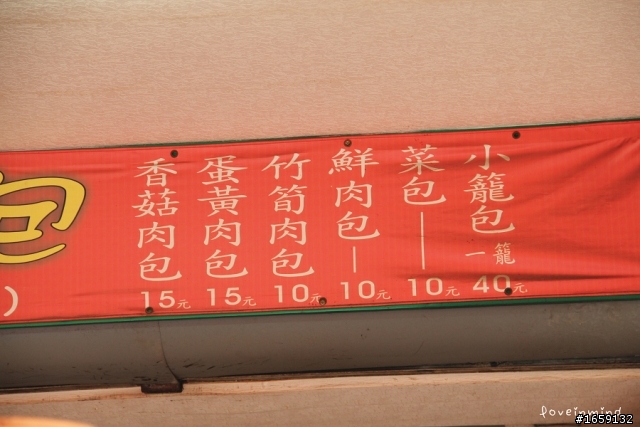 小籠包 一籠 40元
菜包 10元
鮮肉包 10元
竹筍肉包 10元
蛋黃肉包 15元
香菇肉包 15元
包
)
loveinmind
#1659132